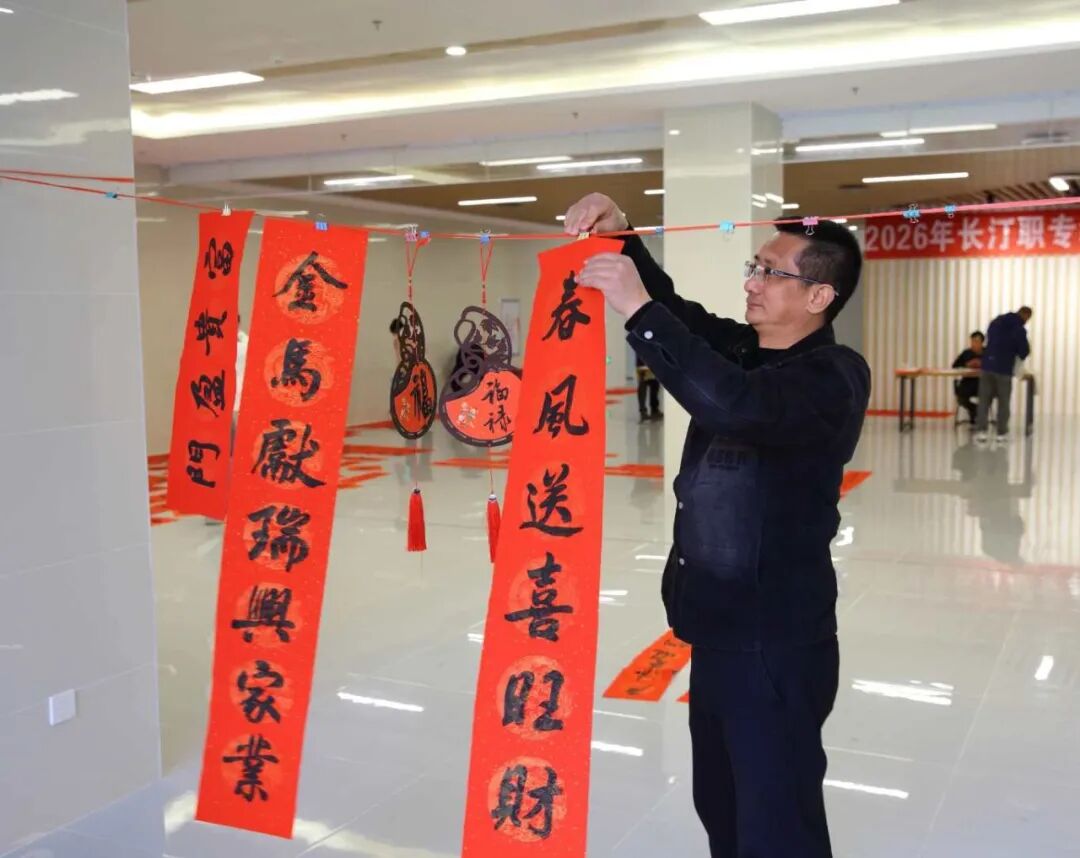 富貴盈門
金馬獻瑞興家業
福
福禄
春風送喜旺財
2026年长汀职专